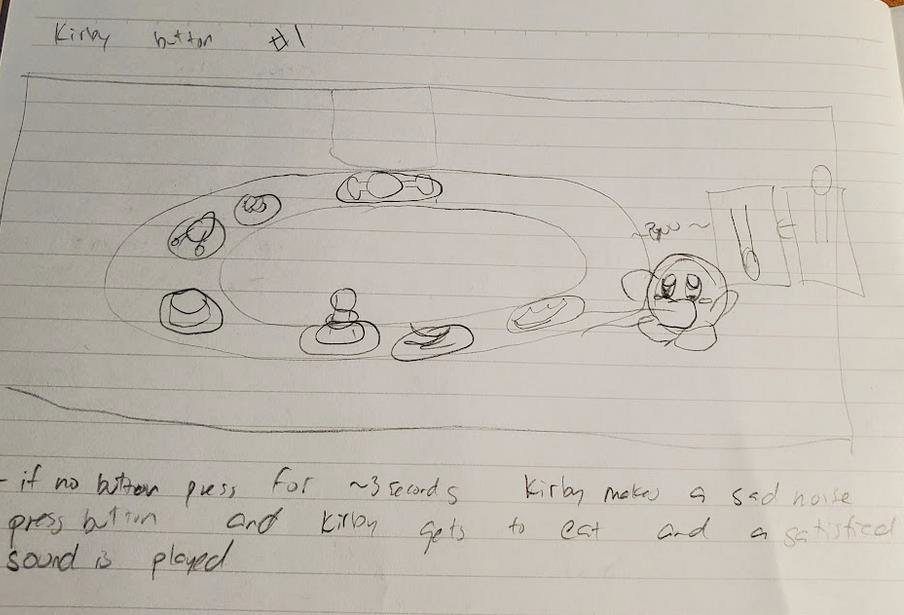 Kirby button #1
- if no button press for ~3 seconds Kirby makes a sad noise
press button and Kirby gets to eat and a satisfied
sound is played